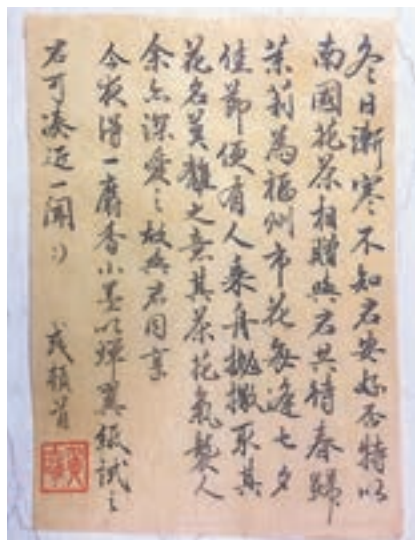 冬日漸寒不知君安好否特以
南國花茶相贈與君共待春歸
茉莉為福州市花每逢七夕
佳節便有人乘舟拋撒取其
花名莫離之意其茶花氣襲人
余亦深愛之故與君同享
今夜得一麝香小墨以蟬翼紙試之
君可湊近一聞:)
頓首